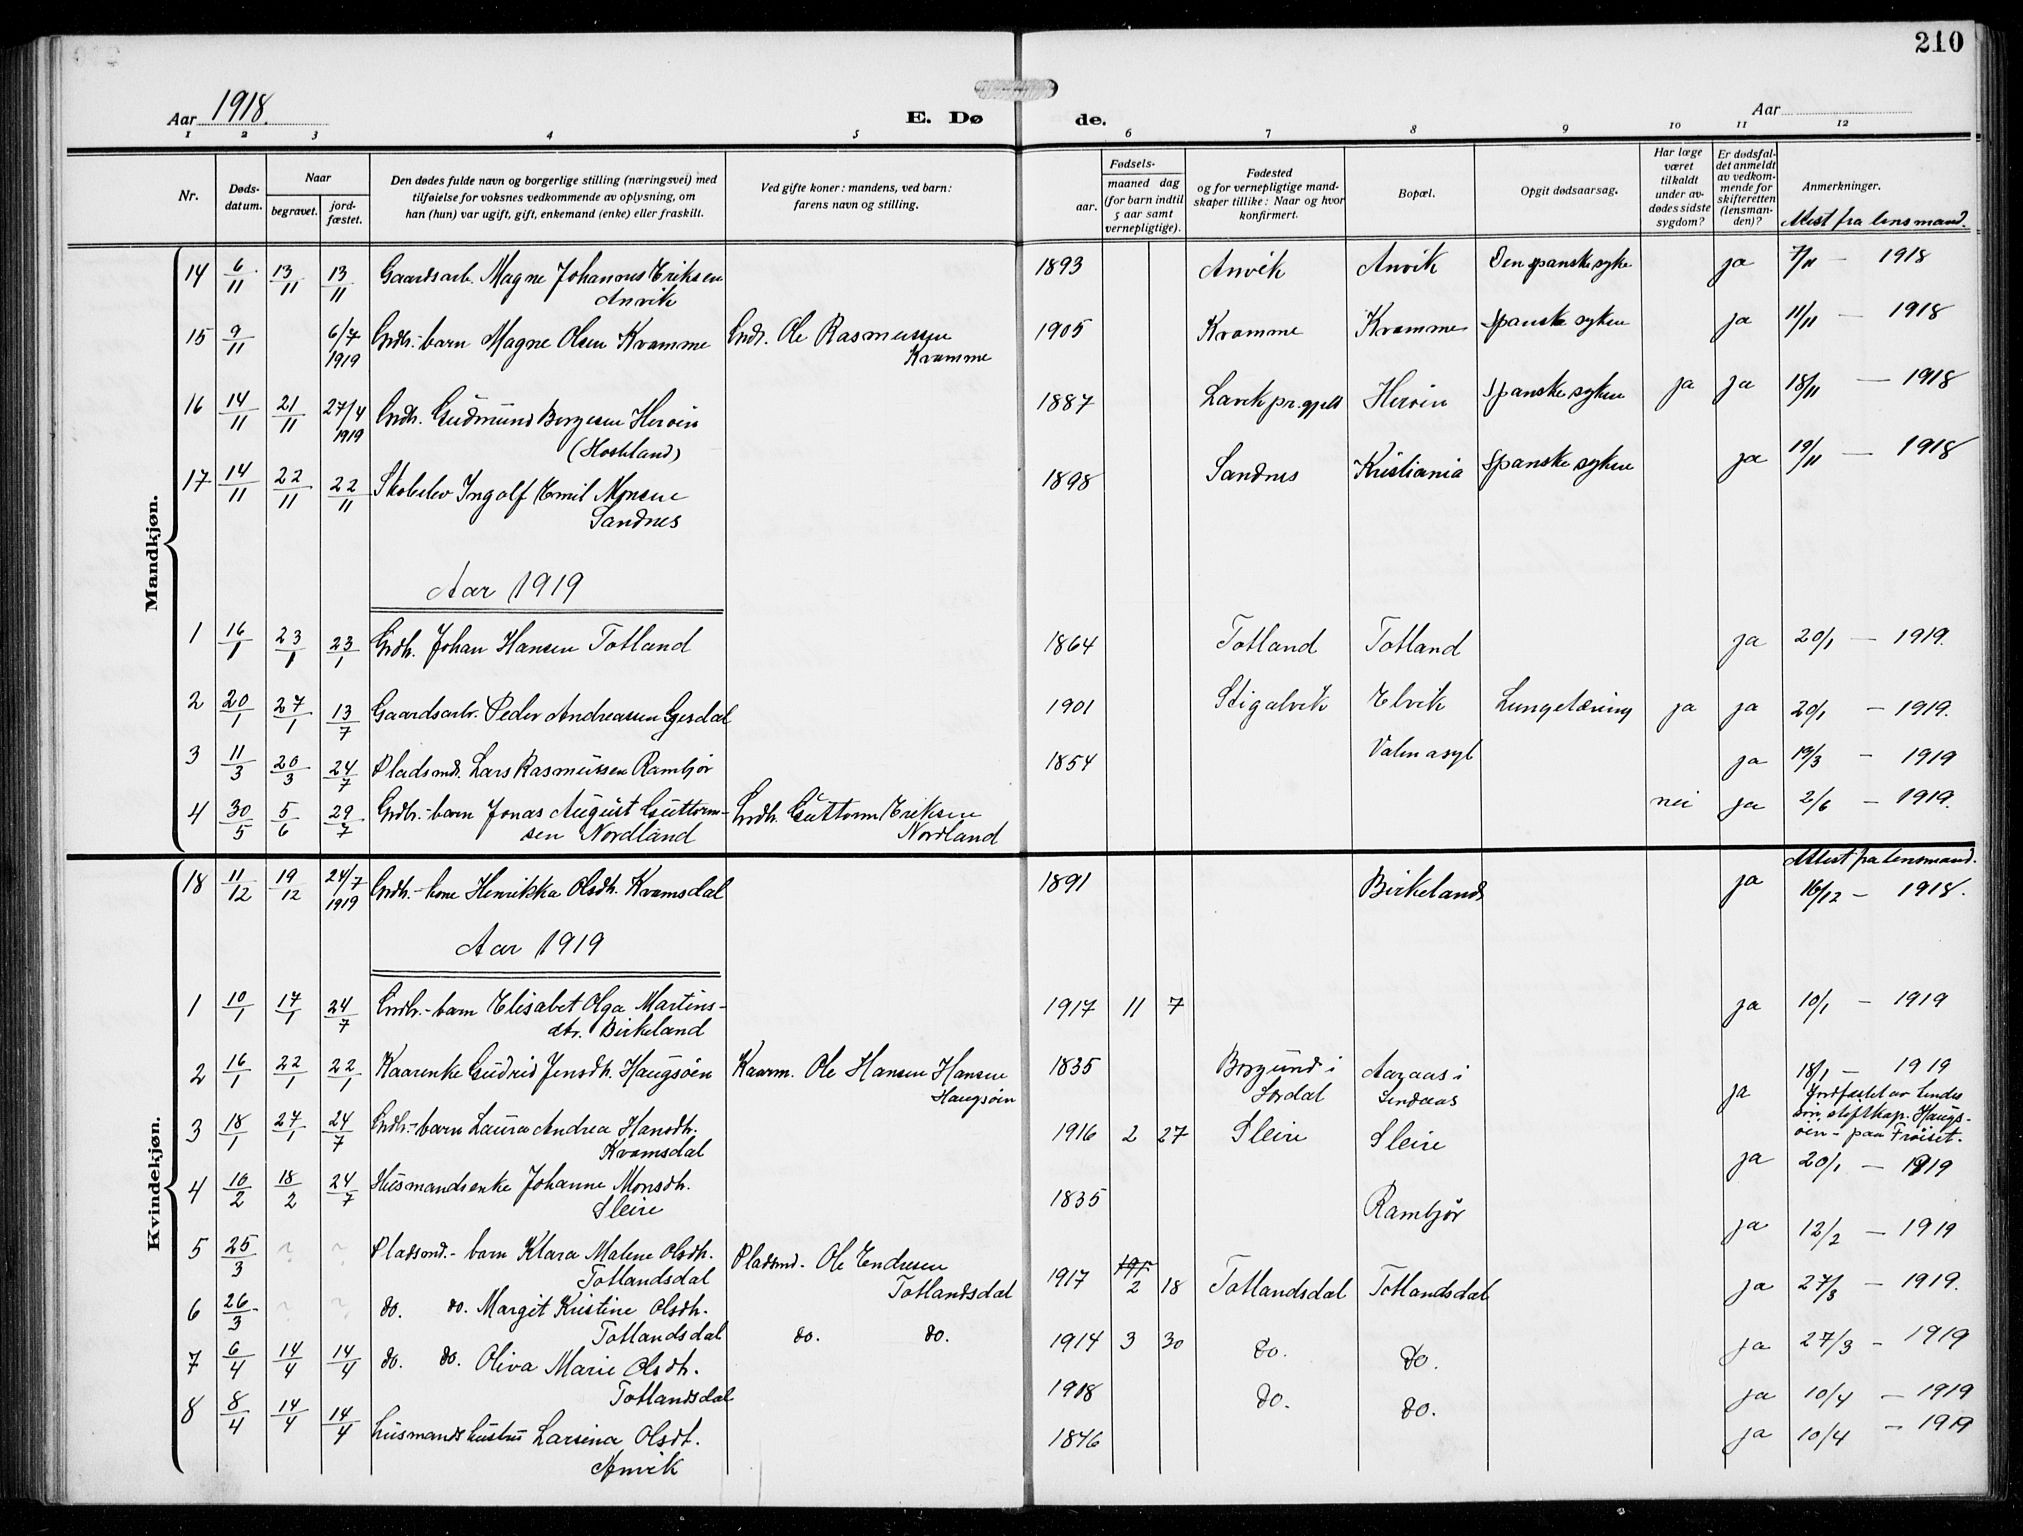 210
Aar 1918.
E. Dø de.
Aar
1 2 3 4 5 6 7 8 9 10 11 12
Nr.
Døds-
datum.
Naar
begravet.
jord-
fæstet.
Den dødes fulde navn og borgerlige stilling (næringsvei) med
tilføielse for voksnes vedkommende av oplysning, om
han (hun) var ugift, gift, enkemand (enke) eller fraskilt.
Ved gifte koner: mandens, ved barn:
farens navn og stilling.
Fødsels-
aar.
maaned dag
(for barn indtil
5 aar samt
vernepligtige).
Fødested
og for vernepligtige mand-
skaper tillike: Naar og hvor
konfirmert.
Bopæl.
Opgit dødsaarsag.
Har læge
været
tilkaldt
under av-
dødes sidste
sygdom?
Er dødsfal-
det anmeldt
av vedkom-
mende for
skifteretten
(lensman-
den)?
Anmerkninger.
Atest fra lensmand.
Mandkjøn.
14 6/11 13/11 13/11 Gaardsarb. Magne Johannes Eriksen 1893 Anvik Anvik Den spanske syke ja 7/11 — 1918
Anvik
15 9/11 6/7 Grdbr.-barn Magne Olsen Kvamme Grdbr. Ole Rasmussen 1905 Kvamme Kvamme Spanske syken ja 11/11 — 1918
1919 Kvamme
16 14/11 21/11 27/4 Grdbr. Gudmund Børgesen Herøen 1887 Lavik pr.gjeld Herøen Spanske syken ja ja 18/11 — 1918
1919 (Hosteland)
17 14/11 22/11 22/11 Skoelev Ingolf Emil Monsen 1898 Sandnes Kristiania Spanske syken ja 19/11 — 1918
Sandnes
Aar 1919
1 16/1 23/1 23/1 Grdbr. Johan Hansen Totland 1864 Totland Totland ja 20/1 — 1919.
2 20/1 27/1 13/7 Gaardsarb. Peder Andreassen Gjesdal 1901 Stigalvik Elvik Lungetæring ja ja 20/1 — 1919.
3 11/3 20/3 24/7 Pladsmd. Lars Rasmussen Rambjør 1854 Valen asyl ja 19/3 — 1919
4 30/5 5/6 29/7 Grdbr.-barn Jonas August Guttorm- Grdbr. Guttorm Eriksen nei ja 2/6 — 1919.
sen Nordland Nordland
Kvindekjøn.
Attest fra lensmand.
18 11/12 19/12 24/7 Grdbr.-kone Henrikka Olsdtr. Kvamsdal 1891 Birkeland ja 16/12 — 1918.
1919
Aar 1919
1 10/1 17/1 24/7 Grdbr.-barn Elisabet Olga Martins- 1917 11 7 ja 10/1 — 1919
dtr. Birkeland
2 16/1 22/1 22/1 Kaarenke Gudrid Jensdtr. Haugsøen Kaarm. Ole Hansen Hansen 1835 Borgund i Aaraas i ja 18/1 — 1919
Haugsøen Lærdal Lindaas Jordfæstet av Lindaas
Haugs-
øen — paa Frøiset.
3 18/1 27/1 24/7 Grdbr.-barn Laura Andrea Hansdtr. 1916 2 27 Sleire Sleire ja 20/1 — 1919
Kvamsdal
4 10/2 18/2 24/7 Husmandsenke Johanne Monsdtr. 1835 Rambjør ja 12/2 — 1919
Sleire
5 25/3 ~ ~ Pladsmd.- barn Klara Malene Olsdtr. Pladsmd. Ole Endresen 1917 2 18 Totlandsdal Totlandsdal ja 27/3 — 1919.
Totlandsdal Totlandsdal
6 26/3 ~ ~ do. do. Margit Kristine Olsdtr. do. do. 1914 3 30 do. do. ja 27/3 — 1919
Totlandsdal
7 6/4 14/4 14/4 do. do. Oliva Marie Olsdtr. 1918 do. do. ja 10/4 — 1919
Totlandsdal
8 8/4 14/4 14/4 Husmandshustru Larsina Olsdt. 1876 ja 10/4 — 1919
Anvik